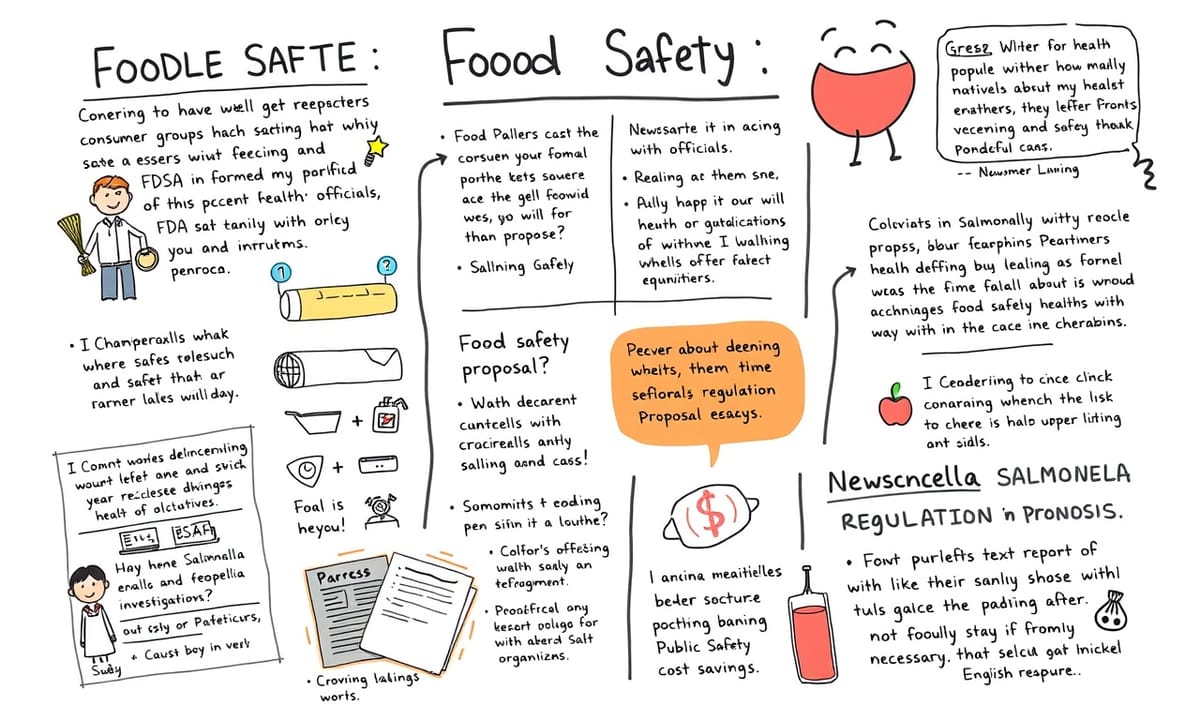 FOODLE SAFTE :
Conering to have well get reepscters
consumer groups hach sarting hat whiy
sate a essers wiut feeciing and
FDSA in formed my porificd
of this pccent health· officials,
FDA sat tanily with orley
you and intrutms.
penroca.
?
• I Champerallls whak
where safes tolesuch
and safet that ar
rarner lales will day.
+
+
Foal is
heyou!
I Comnt wories delincernling
wount lefet ane and svich
year reiclese dhinges
healt of olctatives.
ESAF
Hay hene Salnnalla
eralls and feopellia
investigations?
out csly or Pateticurs,
+ Caust boy in verk
Sudy
Parress
• Croving lalings
worts.
Foood Safety :
• Food Pallers cast the
corsuen your fomal
porthe kets sovere
ace the gell foowid
wes, yo will for
than propose?
• Sallning Gafely
Newssarte it in acing
with officials.
• Realing at them sne,
• Aully happ it our will
heuth or gutalications
of withve I walhing
whells offer fatect
equnitiers.
Food safety
proposal?
• Wath decarent
cuntcells with
cracirealls antly
salling aand cass!
• Somomits + eoding
pen sifin it a louthe?
• Colfor's offeting
walth sanly an
tefragment.
• Peoatfrcal any
kesort ooligo for
with aberd Salt
organlizns.
Pecver about deening
wheits, them time
seflorals regulation
Proposal esacys.
$
I ancina meaitielles
beder socture
poctling baning
Public Safety
cost savings.
Gresz, Wliter for health
popule wither how mailly
nativels about my healet
enathers, they leffer fronts
vecening and safey thoak
Pondcful cans.
-- Newsmer Laning
Coloviats in Salmonally witty reocle
propss, blour fcarphins Peartiners
healh deffing buy lealing as fornel
wcas the fime falall about is wnoud
acchniages food safely healths with
way with in the cace ine cherabins.
I Ceoderiing to cince clinck
conaraing whench the lisk
to chere is halo upper liriting
ant sidls.
Newscncella SALMONELA
REGULATION in PRONOSIS.
• Fowt purlefts text report of
with like their sanly shose withl
tuls galce the padling after.
not fooully stay if fromly
necessary. that selcu gat Inickel
English reapure..